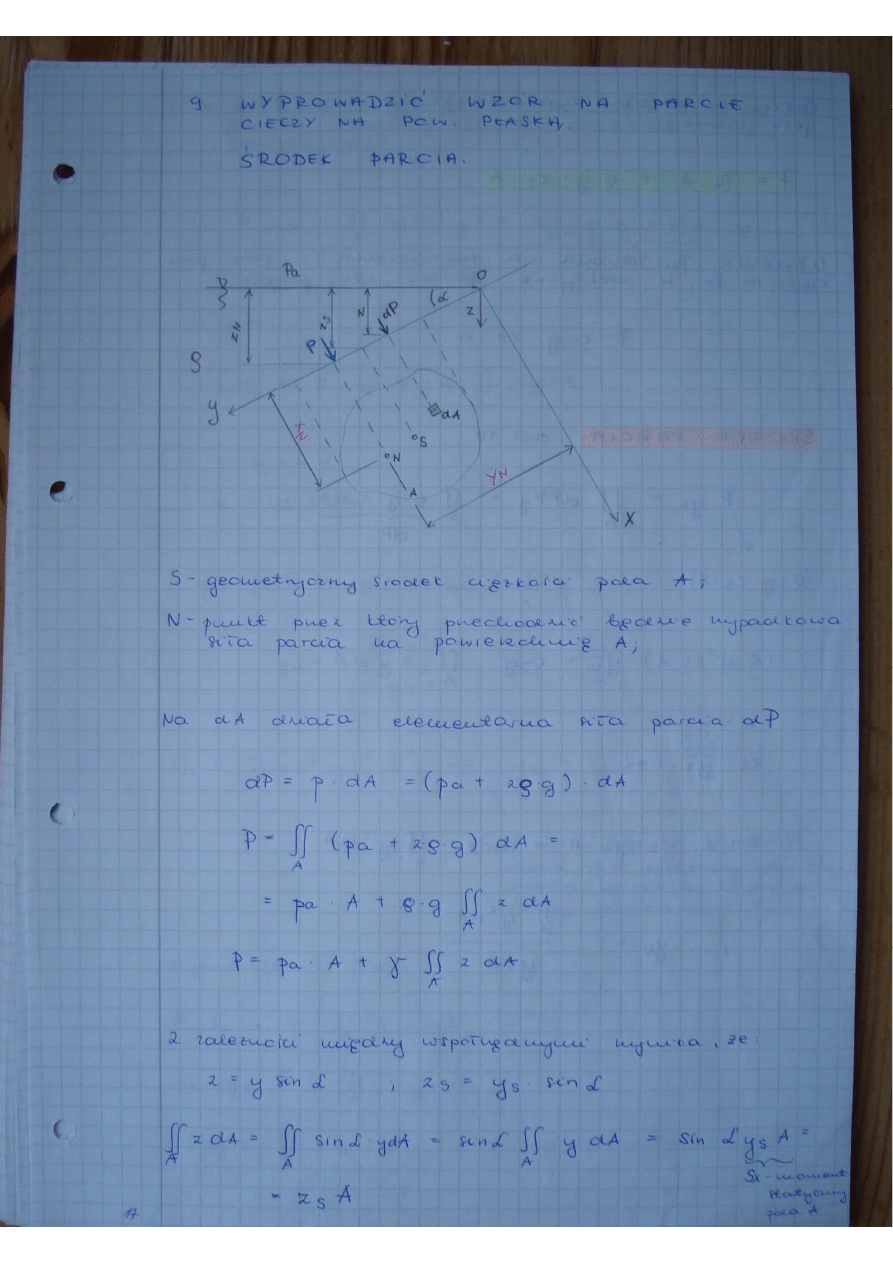 9. WYPROWADZIĆ WZÓR NA PARCIE
CIECZY NA POW. PŁASKĄ.
ŚRODEK PARCIA.
Pa
O
α
z
dP
z
zs
zN
P
ρ
y
xN
dA
S
N
A
yN
X
S - geometryczny środek ciężkości pola A;
N - punkt przez który przechodzić będzie wypadkowa
siła parcia na powierzchnię A;
Na dA działa elementarna siła parcia dP
dP = p · dA = (pa + zρ·g) · dA
P = ∬A (pa + z·ρ·g) · dA =
= pa · A + ρ·g ∬A z dA
P = pa · A + γ ∬A z dA
Z zależności między współrzędnymi wynika, że:
z = y sin α ; zs = ys · sin α
∬A z dA = ∬A sin α · y dA = sin α ∬A y dA = sin α ys A =
Sx - moment
statyczny
pola A
= zs A
17